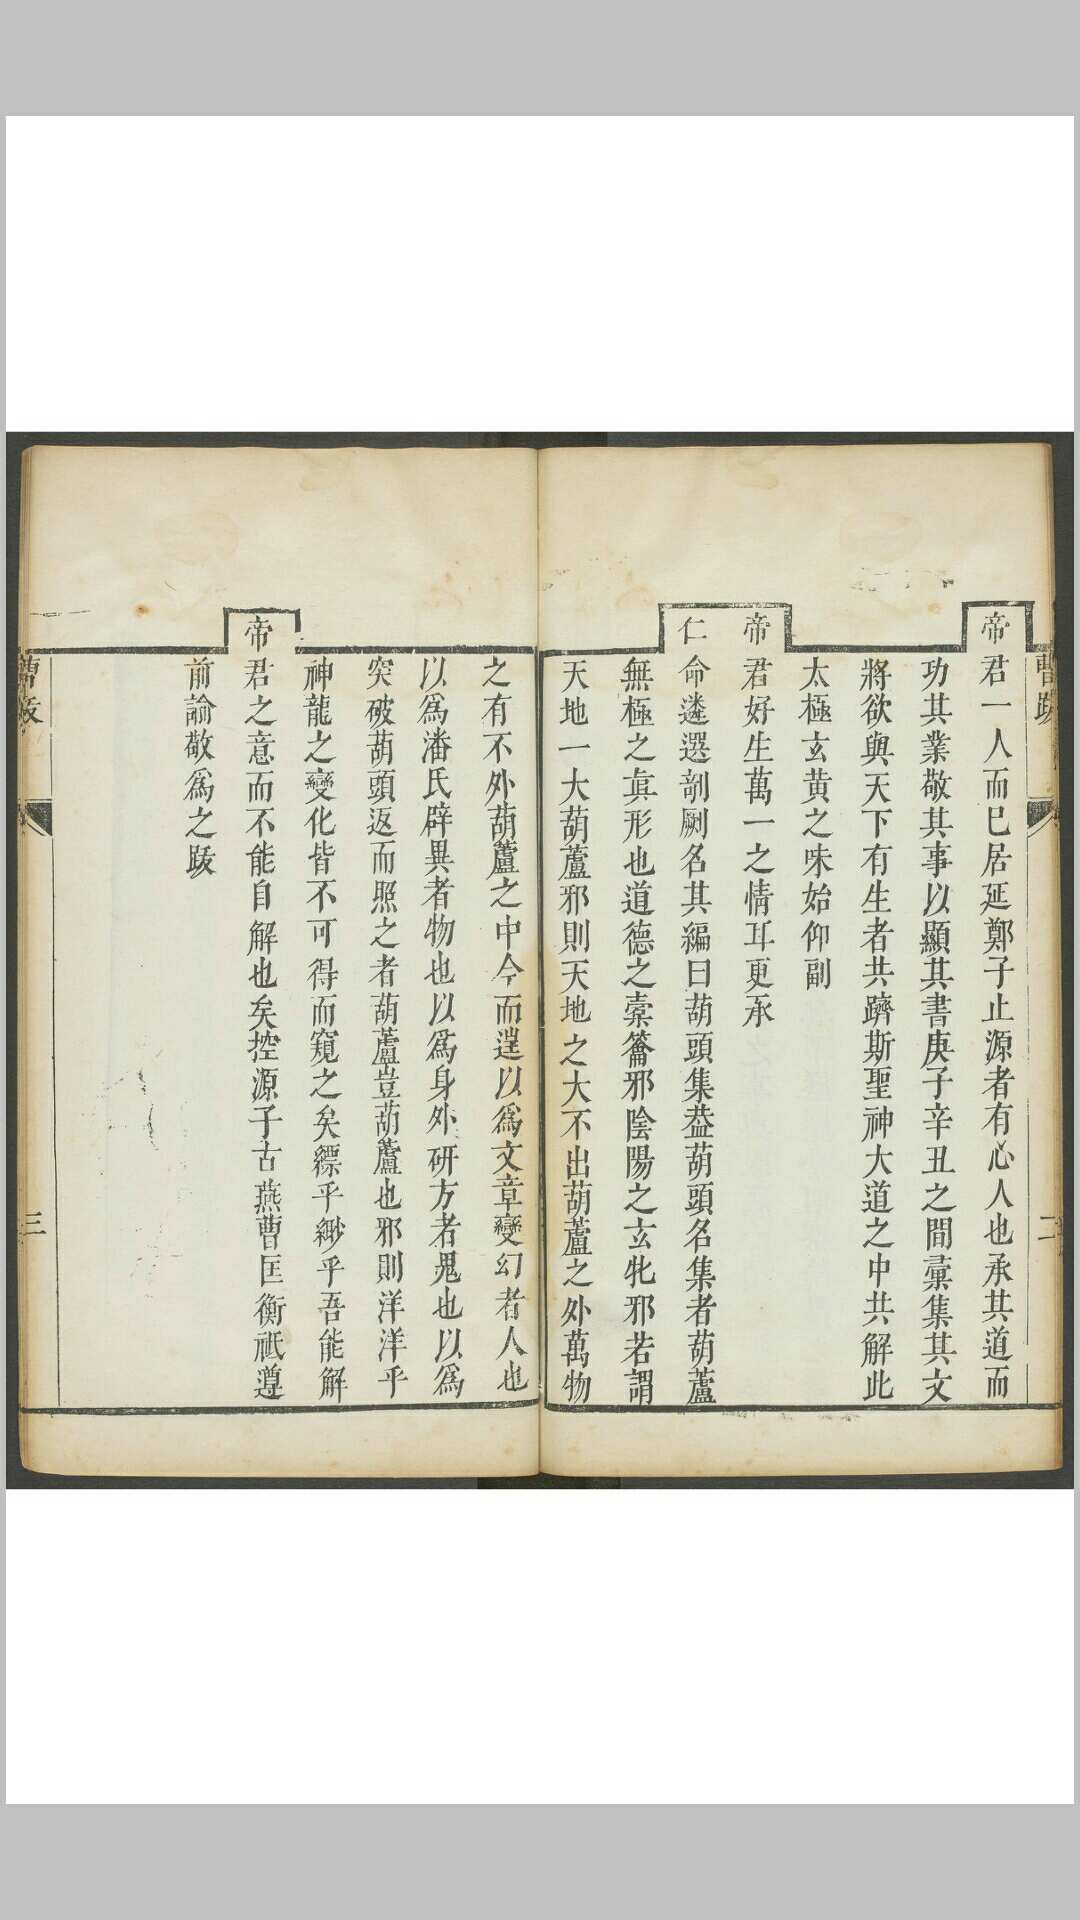 曹跋
二
帝君一人而已居延鄭子止源者有心人也承其道而
功其業敬其事以顯其書庚子辛丑之間彚集其文
將欲與天下有生者共躋斯聖神大道之中共解此
太極玄黄之味始仰副
帝君好生萬一之情耳更承
仁命遴選剞劂名其編曰葫頭集葢葫頭名集者葫蘆
無極之眞形也道德之橐籥邪陰陽之玄牝邪若謂
天地一大葫蘆邪則天地之大不出葫蘆之外萬物
之有不外葫蘆之中今而逞以爲文章變幻者人也
以爲潘氏辟異者物也以爲身外研方者鬼也以爲
突破葫頭返而照之者葫蘆豈葫蘆也邪則洋洋乎
神龍之變化皆不可得而窺之矣縹乎緲乎吾能解
帝君之意而不能自解也矣控源子古燕曹匡衡祇遵
前論敬爲之跋
曹跋
三